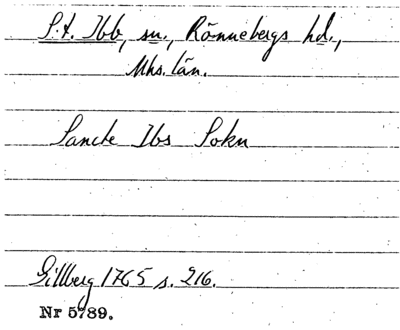 S:t. Ibb, sn., Rönnebergs hd.,
Mhs. län.
Sancte Ibs Sokn
Gillberg 1765 s. 216.
Nr 5789.